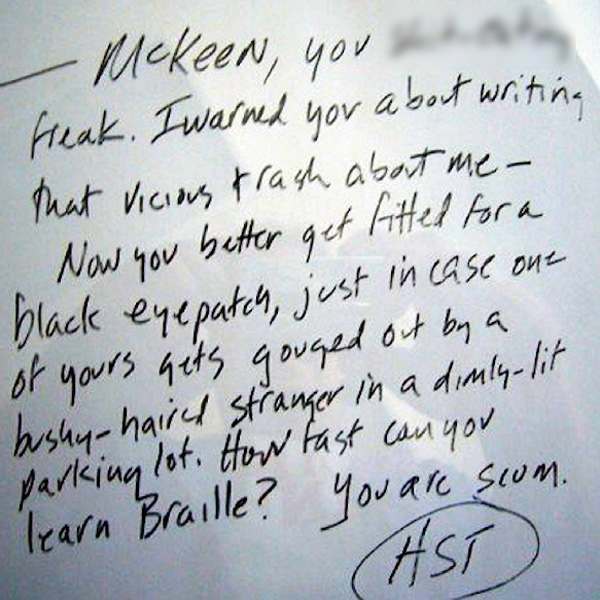 — McKeen, you
freak. I warned you about writing
that vicious trash about me —
Now you better get fitted for a
black eyepatch, just in case one
of yours gets gouged out by a
bushy-haired stranger in a dimly-lit
parking lot. How fast can you
learn Braille? You are scum.
HST